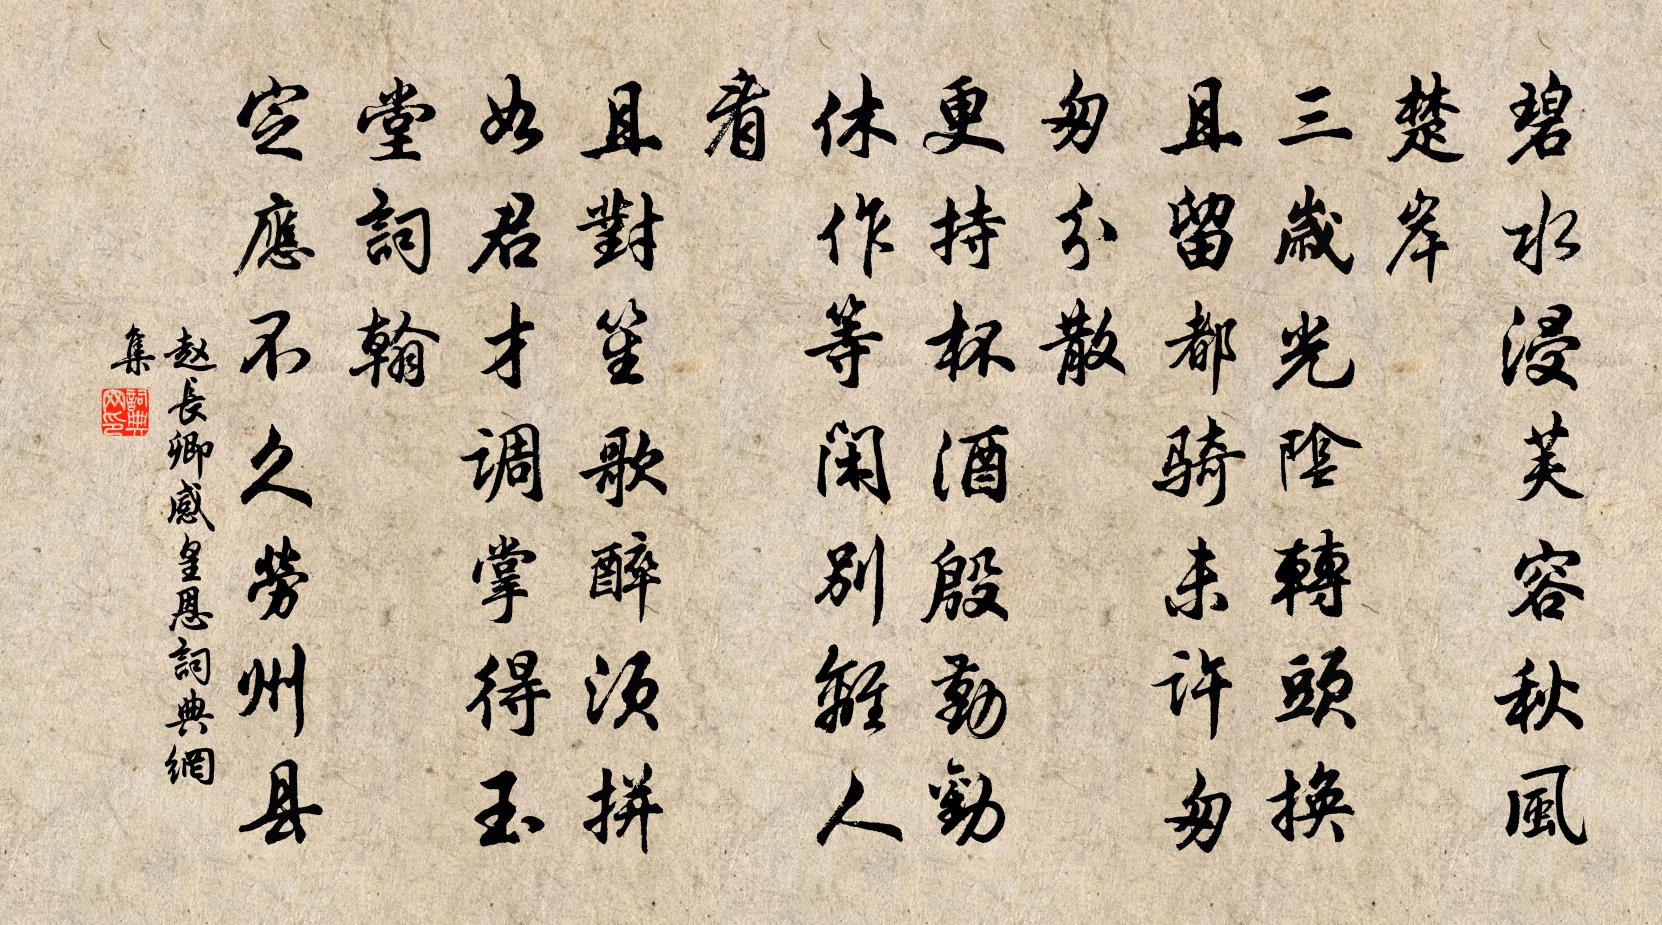 碧水浸芙容秋風
楚岸
三歲光陰轉頭換
且留都騎未許匆
匆分散
更持杯酒殷勤勸
休作等閑別離人
看
且對笙歌醉須拼
如君才调掌得玉
堂詞翰
定應不久勞州县
赵長卿感皇恩詞典網
集
詞典
网印